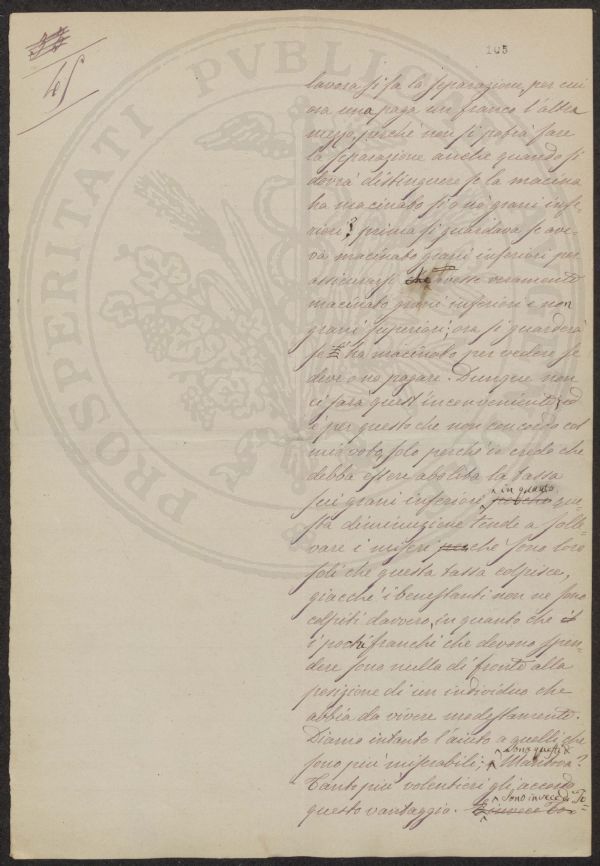 45
105
PROSPERITATI PVBLICAE
lavora si fa la separazione, per cui
ora una paga un franco l'altra
mezzo, perchè non si potrà fare
la separazione anche quando si
dovrà distinguere se la macina
ha macinato sì o no grani infe-
riori? prima si guardava se ave-
va macinato grani inferiori per
assicurarsi che avesse veramente
macinato grani inferiori e non
grani superiori; ora si guarderà
se ha macinato per vedere se
deve o no pagare. Dunque non
ci sarà quest'inconveniente, ed
è per questo che non concordo col
mio voto, solo perchè io credo che
debba essere abolita la tassa
sui grani inferiori in quanto que-
sta diminuzione tende a solle-
vare i miseri chè sono loro
soli che questa tassa colpisce,
giacchè i benestanti non ne sono
colpiti davvero, in quanto che
i pochi franchi che devono spen-
dere sono nulla di fronte alla
posizione di un individuo che
abbia da vivere modestamente.
Diamo intanto l'aiuto a quelli che
sono più miserabili; sono questi di Mantova?
Tanto più volentieri gli accordo
questo vantaggio. Sono invece di To-